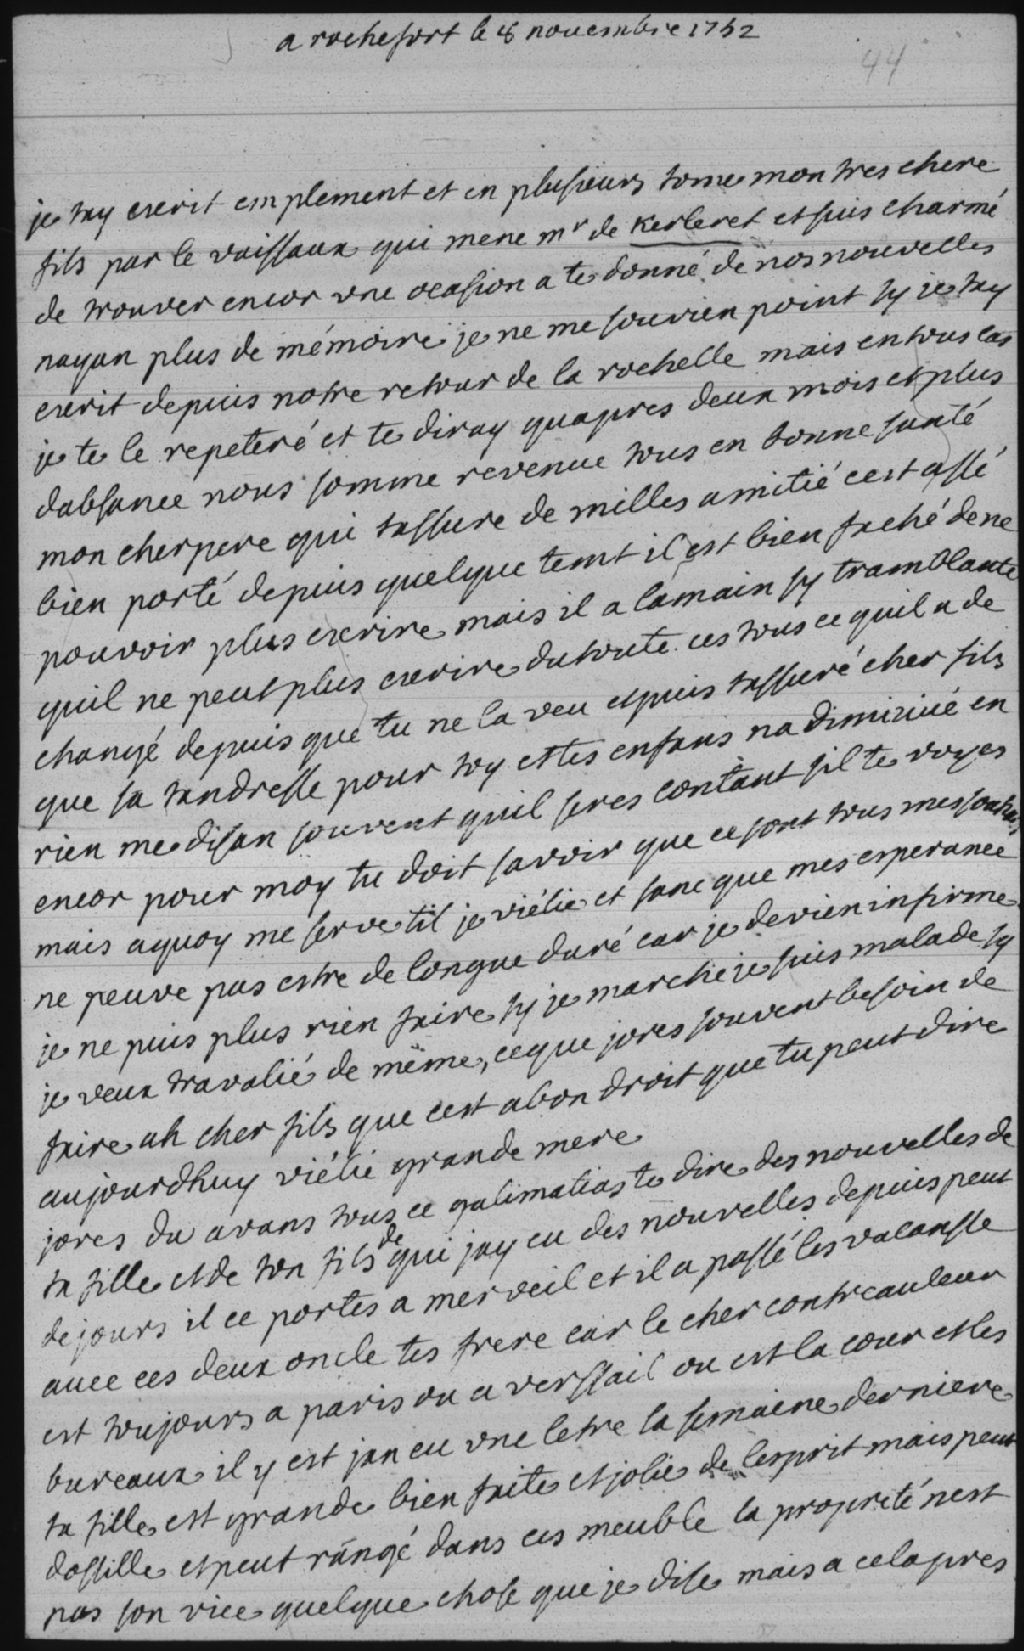 a rochefort le 8 novembre 1752
44
je tay escrit emplement et en plusieurs tome mon tres chere
fils par le vaissaux qui mene mr de Kerleret et suis charmé
de trouver encor une ocasion a te donné de nos nouvelles
nayan plus de mémoire je ne me souvien point sy je tay
escrit depuis notre retour de la rochelle mais en tous cas
je te le repeteré et te diray quapres deux mois et plus
dabsance nous somme revenue tous en bonne santé
mon cher pere qui tassure de milles amitié cest assé
bien porté depuis quelque temt il est bien faché de ne
pouvoir plus escrire mais il a la main sy tramblante
quil ne peut plus escrire du toute ces tous ce quil a de
changé depuis que tu ne la veu et puis tassuré cher fils
que sa tandresse pour toy et tes enfans na diminué en
rien me disan souvent quil seres contant sil te voyes
encor pour moy tu doit savoir que ce sont tous mes souhais
mais a quoy me serve til je viélie et sanc que mes esperance
ne peuve pas estre de longue duré car je devien infirme
je ne puis plus rien faire sy je marche je suis malade sy
je veux travalié de même, ce que jores souvent besoin de
faire ah cher fils que cest a bon droit que tu peut dire
aujourdhuy viélie grande mere
jores du avans tous ce galimatias te dire des nouvelles de
ta fille et de ton fils de qui jay eu des nouvelles depuis peut
de jours il ce portes a merveil et il a passé les vacansse
avec ces deux oncle tes frere car le cher contrcauleur
est toujours a paris ou a verssail ou est la cour et les
bureaux il y est jan eu une letre la semaine derniere
ta fille est grande bien faite et jolie de lesprit mais peut
dossille et peut rangé dans ces meuble la propreté nest
pas son vice quelque chose que je dise mais a cela pres